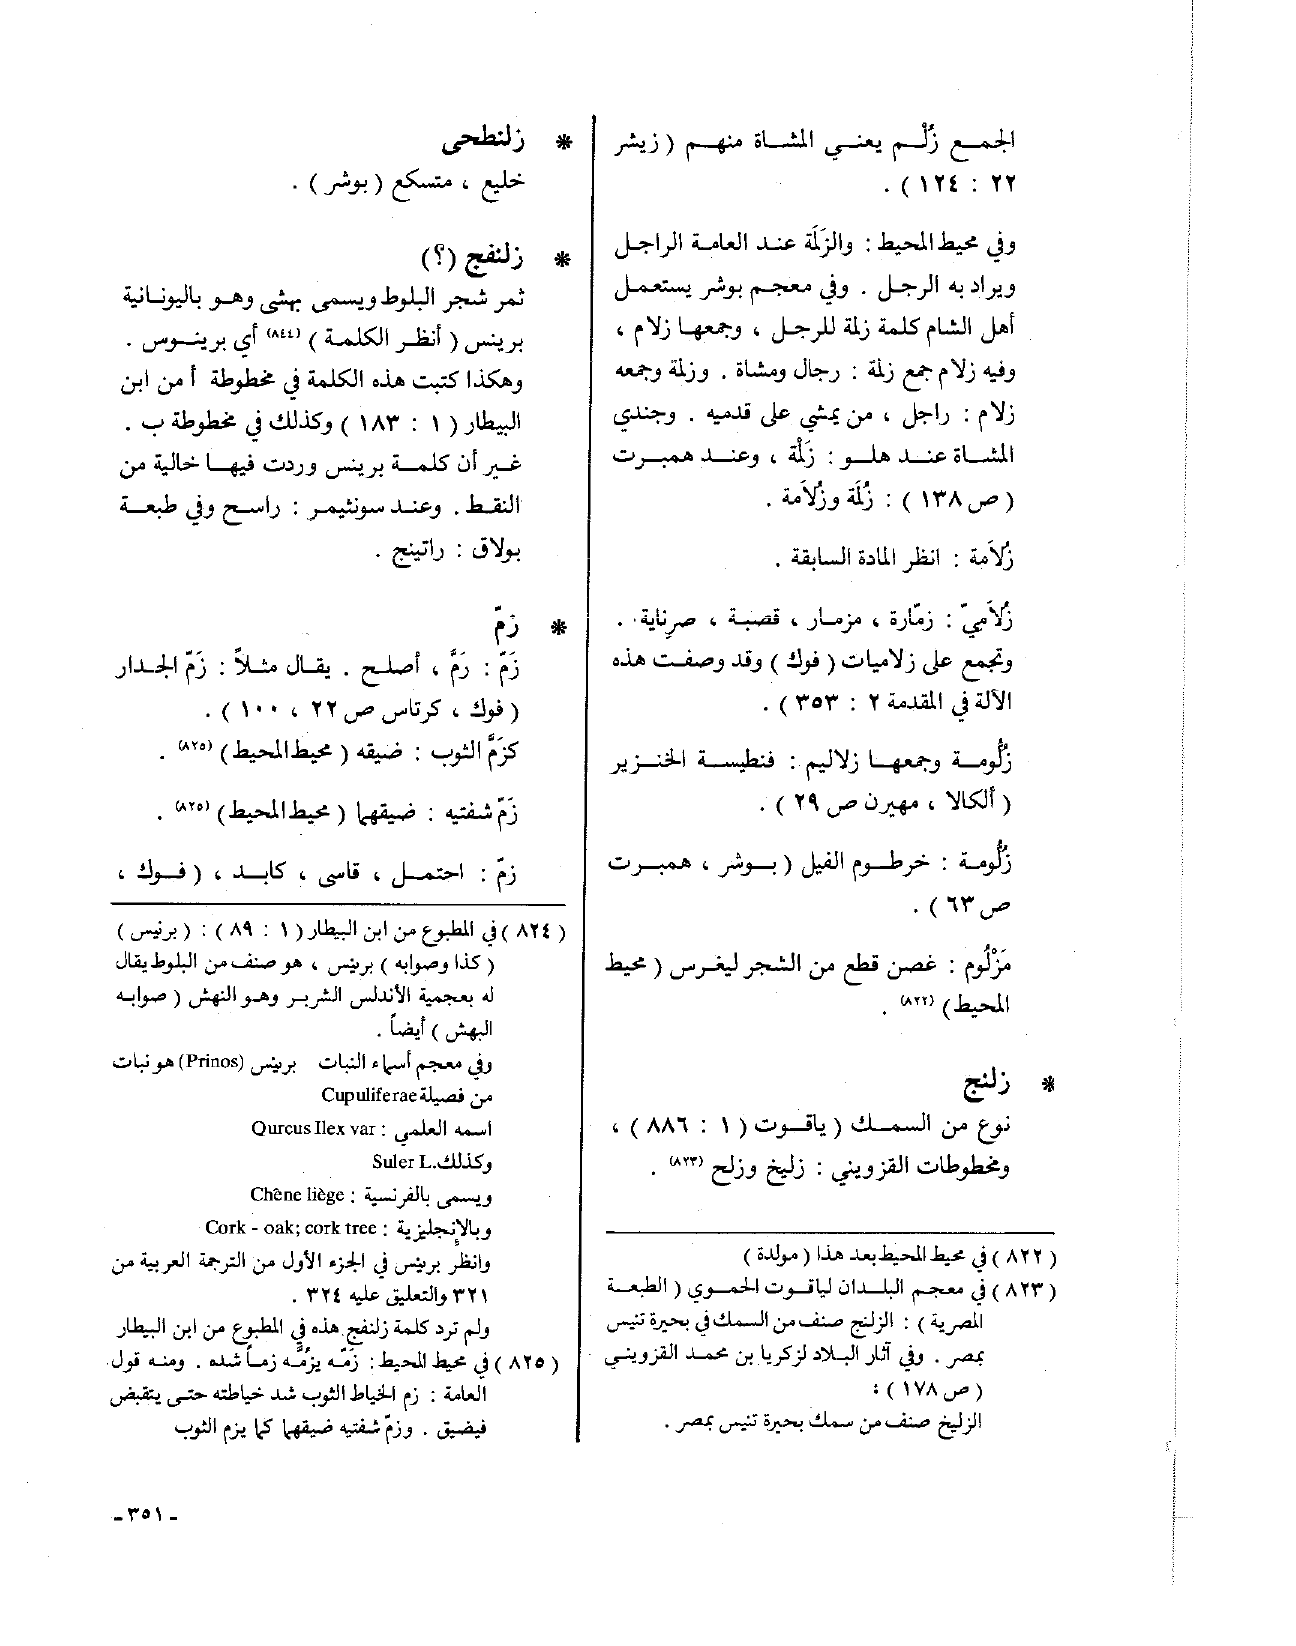 الجمع زُلُم يعني المشاة منهم ( زيشر
٢٢ : ١٢٤ ) .
وفي محيط المحيط : والزَلَة عند العامة الراجل
ويراد به الرجل . وفي معجم بوشر يستعمل
أهل الشام كلمة زلمة للرجل ، وجمعها زلام ،
وفيه زلام جمع زلمة : رجال ومشاة . وزلمة وجمعه
زلام : راجل ، من يمشي على قدميه . وجندي
المشاة عند هلو : زَلْمة ، وعند همبرت
( ص ١٣٨ ) : زُلَمة وزُلاَمة .
زُلاَمة : انظر المادة السابقة .
زُلاَميّ : زمّارة ، مزمار ، قصبة ، صرناية .
وتجمع على زلاميات ( فوك ) وقد وصفت هذه
الآلة في المقدمة ٢ : ٣٥٣ ) .
زلُّومة وجمعها زلاليم : فنطيسة الخنزير
( ألكالا ، مهيرن ص ٢٩ ) .
زلُّومة : خرطوم الفيل ( بوشر ، همبرت
ص ٦٣ ) .
مَزْلُوم : غصن قطع من الشجر ليغرس ( محيط
المحيط ) (٨٢٢) .
* زلنج
نوع من السمك ( ياقوت ( ١ : ٨٨٦ ) ،
ومخطوطات القزويني : زليخ وزلح (٨٢٣) .
( ٨٢٢ ) في محيط المحيط بعد هذا ( مولدة )
( ٨٢٣ ) في معجم البلدان لياقوت الحموي ( الطبعة
المصرية ) : الزلنج صنف من السمك في بحيرة تنيس
بمصر . وفي آثار البلاد لزكريا بن محمد القزويني
( ص ١٧٨ ) :
الزليخ صنف من سمك بحيرة تنيس بمصر .
* زلنطحى
خليع ، متسكع ( بوشر ) .
* زلنفج (؟)
ثمر شجر البلوط ويسمى بهشى وهو باليونانية
برينس ( أنظر الكلمة ) (٨٤٤) أي برينوس .
وهكذا كتبت هذه الكلمة في مخطوطة أ من ابن
البيطار ( ١ : ١٨٣ ) وكذلك في مخطوطة ب .
غير أن كلمة برينس وردت فيها خالية من
النقط . وعند سونثيمر : راسح وفي طبعة
بولاق : راتينج .
* زمّ
زَمّ : رَمَّ ، أصلح . يقال مثلاً : زَمّ الجدار
( فوك ، كرتاس ص ٢٢ ، ١٠٠ ) .
كزَمَّ الثوب : ضيقه ( محيط المحيط ) (٨٢٥) .
زَمّ شفتيه : ضيقها ( محيط المحيط ) (٨٢٥) .
زمّ : احتمل ، قاسى ، كابد ، ( فوك ،
( ٨٢٤ ) في المطبوع من ابن البيطار ( ١ : ٨٩ ) : ( برنيس )
( كذا وصوابه ) برينس ، هو صنف من البلوط يقال
له بعجمية الأندلس الشربر وهو النهش ( صوابه
البهش ) أيضاً .
وفي معجم أسماء النبات برينس (Prinos) هو نبات
من فصيلة Cupuliferae
اسمه العلمي : Qurcus Ilex var
وكذلك Suler L.
ويسمى بالفرنسية : Chêne liège
وبالإنجليزية : Cork - oak; cork tree
وانظر برينس في الجزء الأول من الترجمة العربية من
٣٢١ والتعليق عليه ٣٢٤ .
ولم ترد كلمة زلنفج هذه في المطبوع من ابن البيطار
( ٨٢٥ ) في محيط المحيط : زَمّه يزُمُّه زماً شده . ومنه قول
العامة : زم الخياط الثوب شد خياطته حتى يتقبض
فيضيق . وزمّ شفتيه ضيقها كما يزم الثوب
- ٣٥١ -